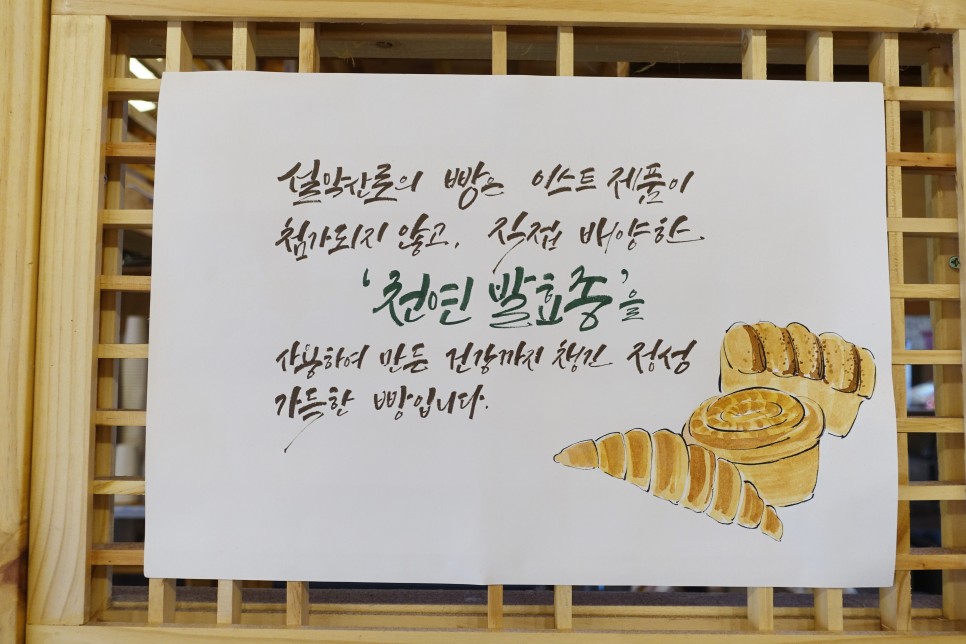 설악산로의 빵은 이스트 제품이
첨가되지 않고, 직접 배양한
'천연 발효종'을
사용하여 만든 건강까지 챙긴 정성
가득한 빵입니다.